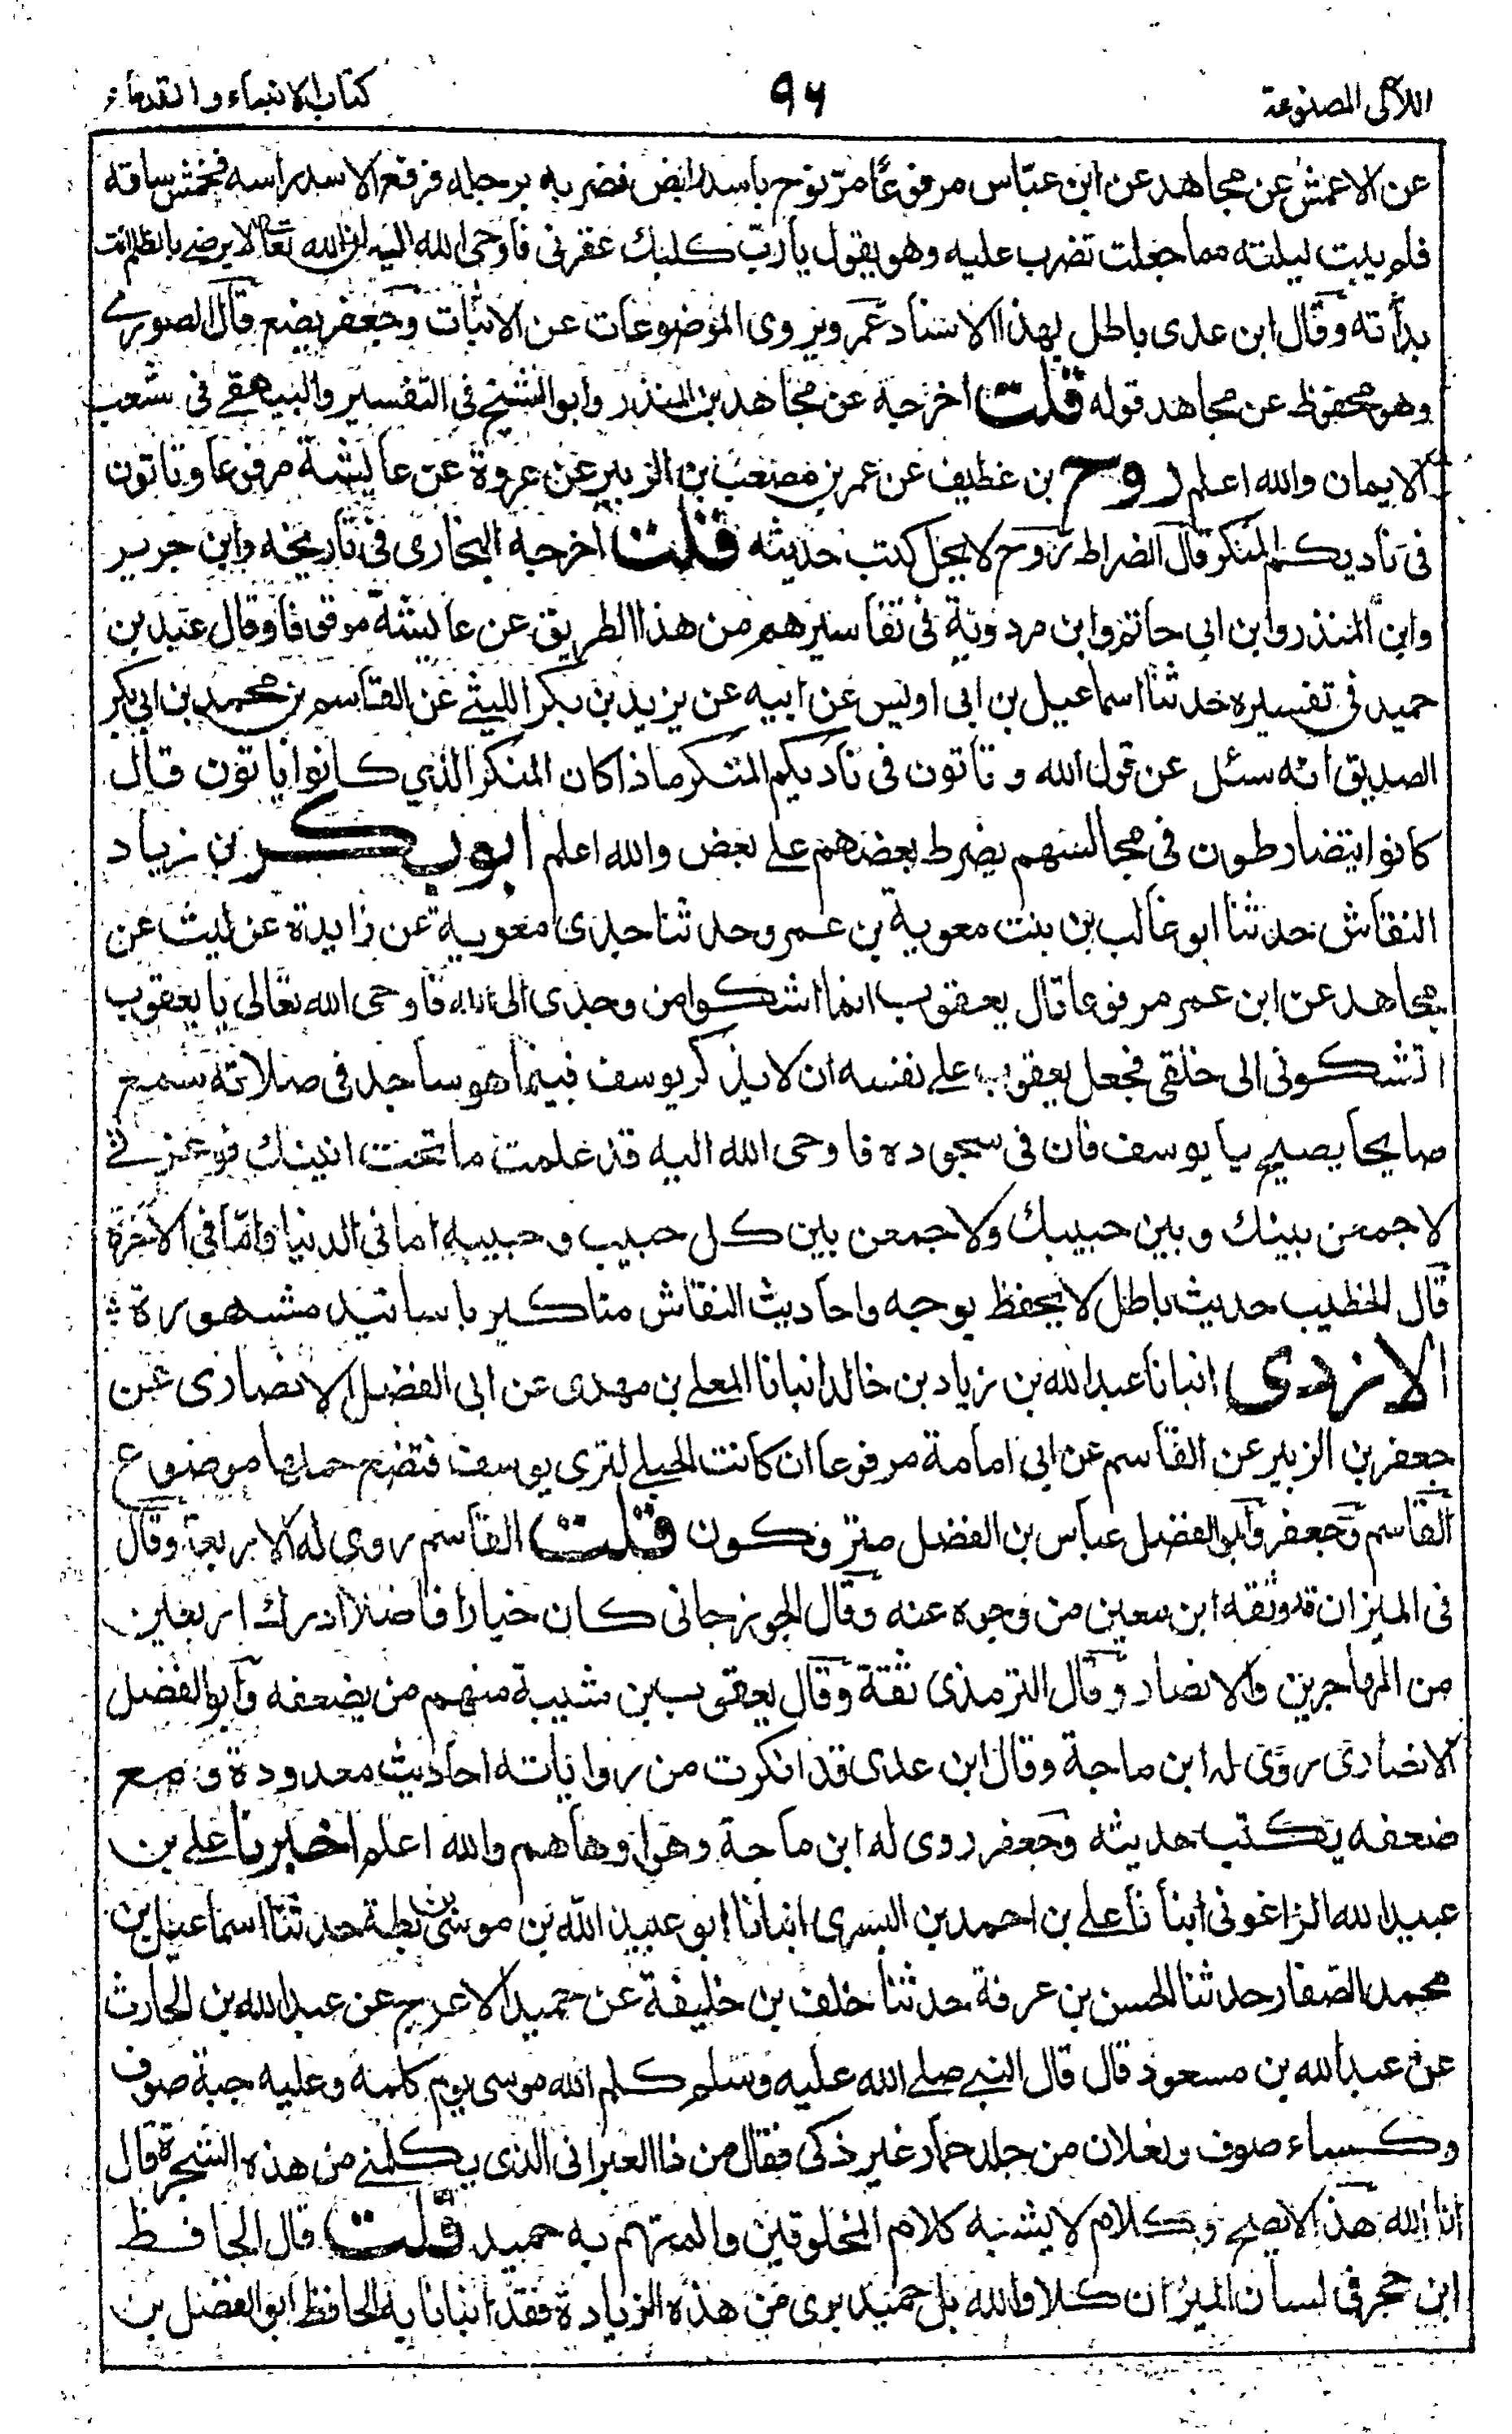 اللآلى المصنوعة
٩٦
كتاب الانبياء والقدماء
عن الاعمش عن مجاهد عن ابن عباس مرفوعا مر نوح باسد رابض فضربه برجله فرفع الاسد راسه فخمش ساقه
فلم يبت ليلته مما جعلت تضرب عليه وهو يقول يا رب كلبك عقرنى فاوحى الله اليه ان الله تعالى لا يرضى بالظلم انت
بدأته وقال ابن عدى باطل بهذا الاسناد عمرو يروى الموضوعات عن الاثبات وجعفر يضع قال الصورى
وهو محفوظ عن مجاهد قوله قلت اخرجه عن مجاهد بن المنذر وابو الشيخ فى التفسير والبيهقى فى شعب
الايمان والله اعلم روح بن غطيف عن عمر بن مصعب بن الزبير عن عروة عن عايشة مرفوعا وتاتون
فى ناديكم المنكر قال الضراط روح لا يحل كتب حديثه قلت اخرجه البخارى فى تاريخه وابن جرير
وابن المنذر وابن ابى حاتم وابن مردوية فى تفاسيرهم من هذا الطريق عن عايشة موقوفا وقال عبد بن
حميد فى تفسيره حدثنا اسماعيل بن ابى اويس عن ابيه عن يزيد بن بكر الليثى عن القاسم بن محمد بن ابى بكر
الصديق انه سئل عن قول الله وتاتون فى ناديكم المنكر ماذا كان المنكر الذي كانوا ياتون قال
كانوا يتضارطون فى مجالسهم يضرط بعضهم على بعض والله اعلم ابو بكر بن زياد
النقاش حدثنا ابو غالب بن بنت معوية بن عمرو حدثنا جدى معوية عن زايدة عن ليث عن
مجاهد عن ابن عمر مرفوعا قال يعقوب انما اشكوا من وجدى الى الله فاوحى الله تعالى يا يعقوب
اتشكونى الى خلقى فجعل يعقوب على نفسه ان لا يذكر يوسف فبينما هو ساجد فى صلاته سمع
صايحا يصيح يا يوسف فان فى سجوده فاوحى الله اليه قد علمت ما تحت انينك فوعزتى
لاجمعن بينك وبين حبيبك ولاجمعن بين كل حبيب وحبيبه اما فى الدنيا واما فى الاخرة
قال الخطيب حديث باطل لا يحفظ بوجه واحاديث النقاش مناكير باسانيد مشهورة
الازدى انبانا عبد الله بن زياد بن خالد انبانا المعلى بن مهدى عن ابى الفضل الانصارى عن
جعفر بن الزبير عن القاسم عن ابى امامة مرفوعا ان كانت الحبلى لترى يوسف فتضع حملها موضوع
القاسم وجعفر وابو الفضل عباس بن الفضل متروكون قلت القاسم روى له الاربعة وقال
فى الميزان قد وثقه ابن معين من وجوه عنه وقال الجوزجانى كان خيارا فاضلا ادرك اربعين
من المهاجرين والانصار وقال الترمذى ثقة وقال يعقوب بن شيبة منهم من يضعفه وابو الفضل
الانصارى روى له ابن ماجة وقال ابن عدى قد انكرت من رواياته احاديث معدودة ومع
ضعفه يكتب حديثه وجعفر روى له ابن ماجة وهو اوهاهم والله اعلم اخبرنا على بن
عبيد الله الزاغونى انبأنا على بن احمد بن البسرى انبانا ابو عبيد الله بن موسى بن بطة حدثنا اسماعيل بن
محمد الصفار حدثنا الحسن بن عرفة حدثنا خلف بن خليفة عن حميد الاعرج عن عبد الله بن الحارث
عن عبد الله بن مسعود قال قال النبى صلى الله عليه وسلم كلم الله موسى يوم كلمه وعليه جبة صوف
وكساء صوف ونعلان من جلد حمار غير ذكى فقال من ذا العبرانى الذى يكلمنى من هذه الشجرة قال
انا الله هذا لا يصح وكلام لا يشبه كلام المخلوقين والمتهم به حميد قلت قال الحافظ
ابن حجر فى لسان الميزان كلا والله بل حميد برى من هذه الزيادة فقد انبانا به الحافظ ابو الفضل بن